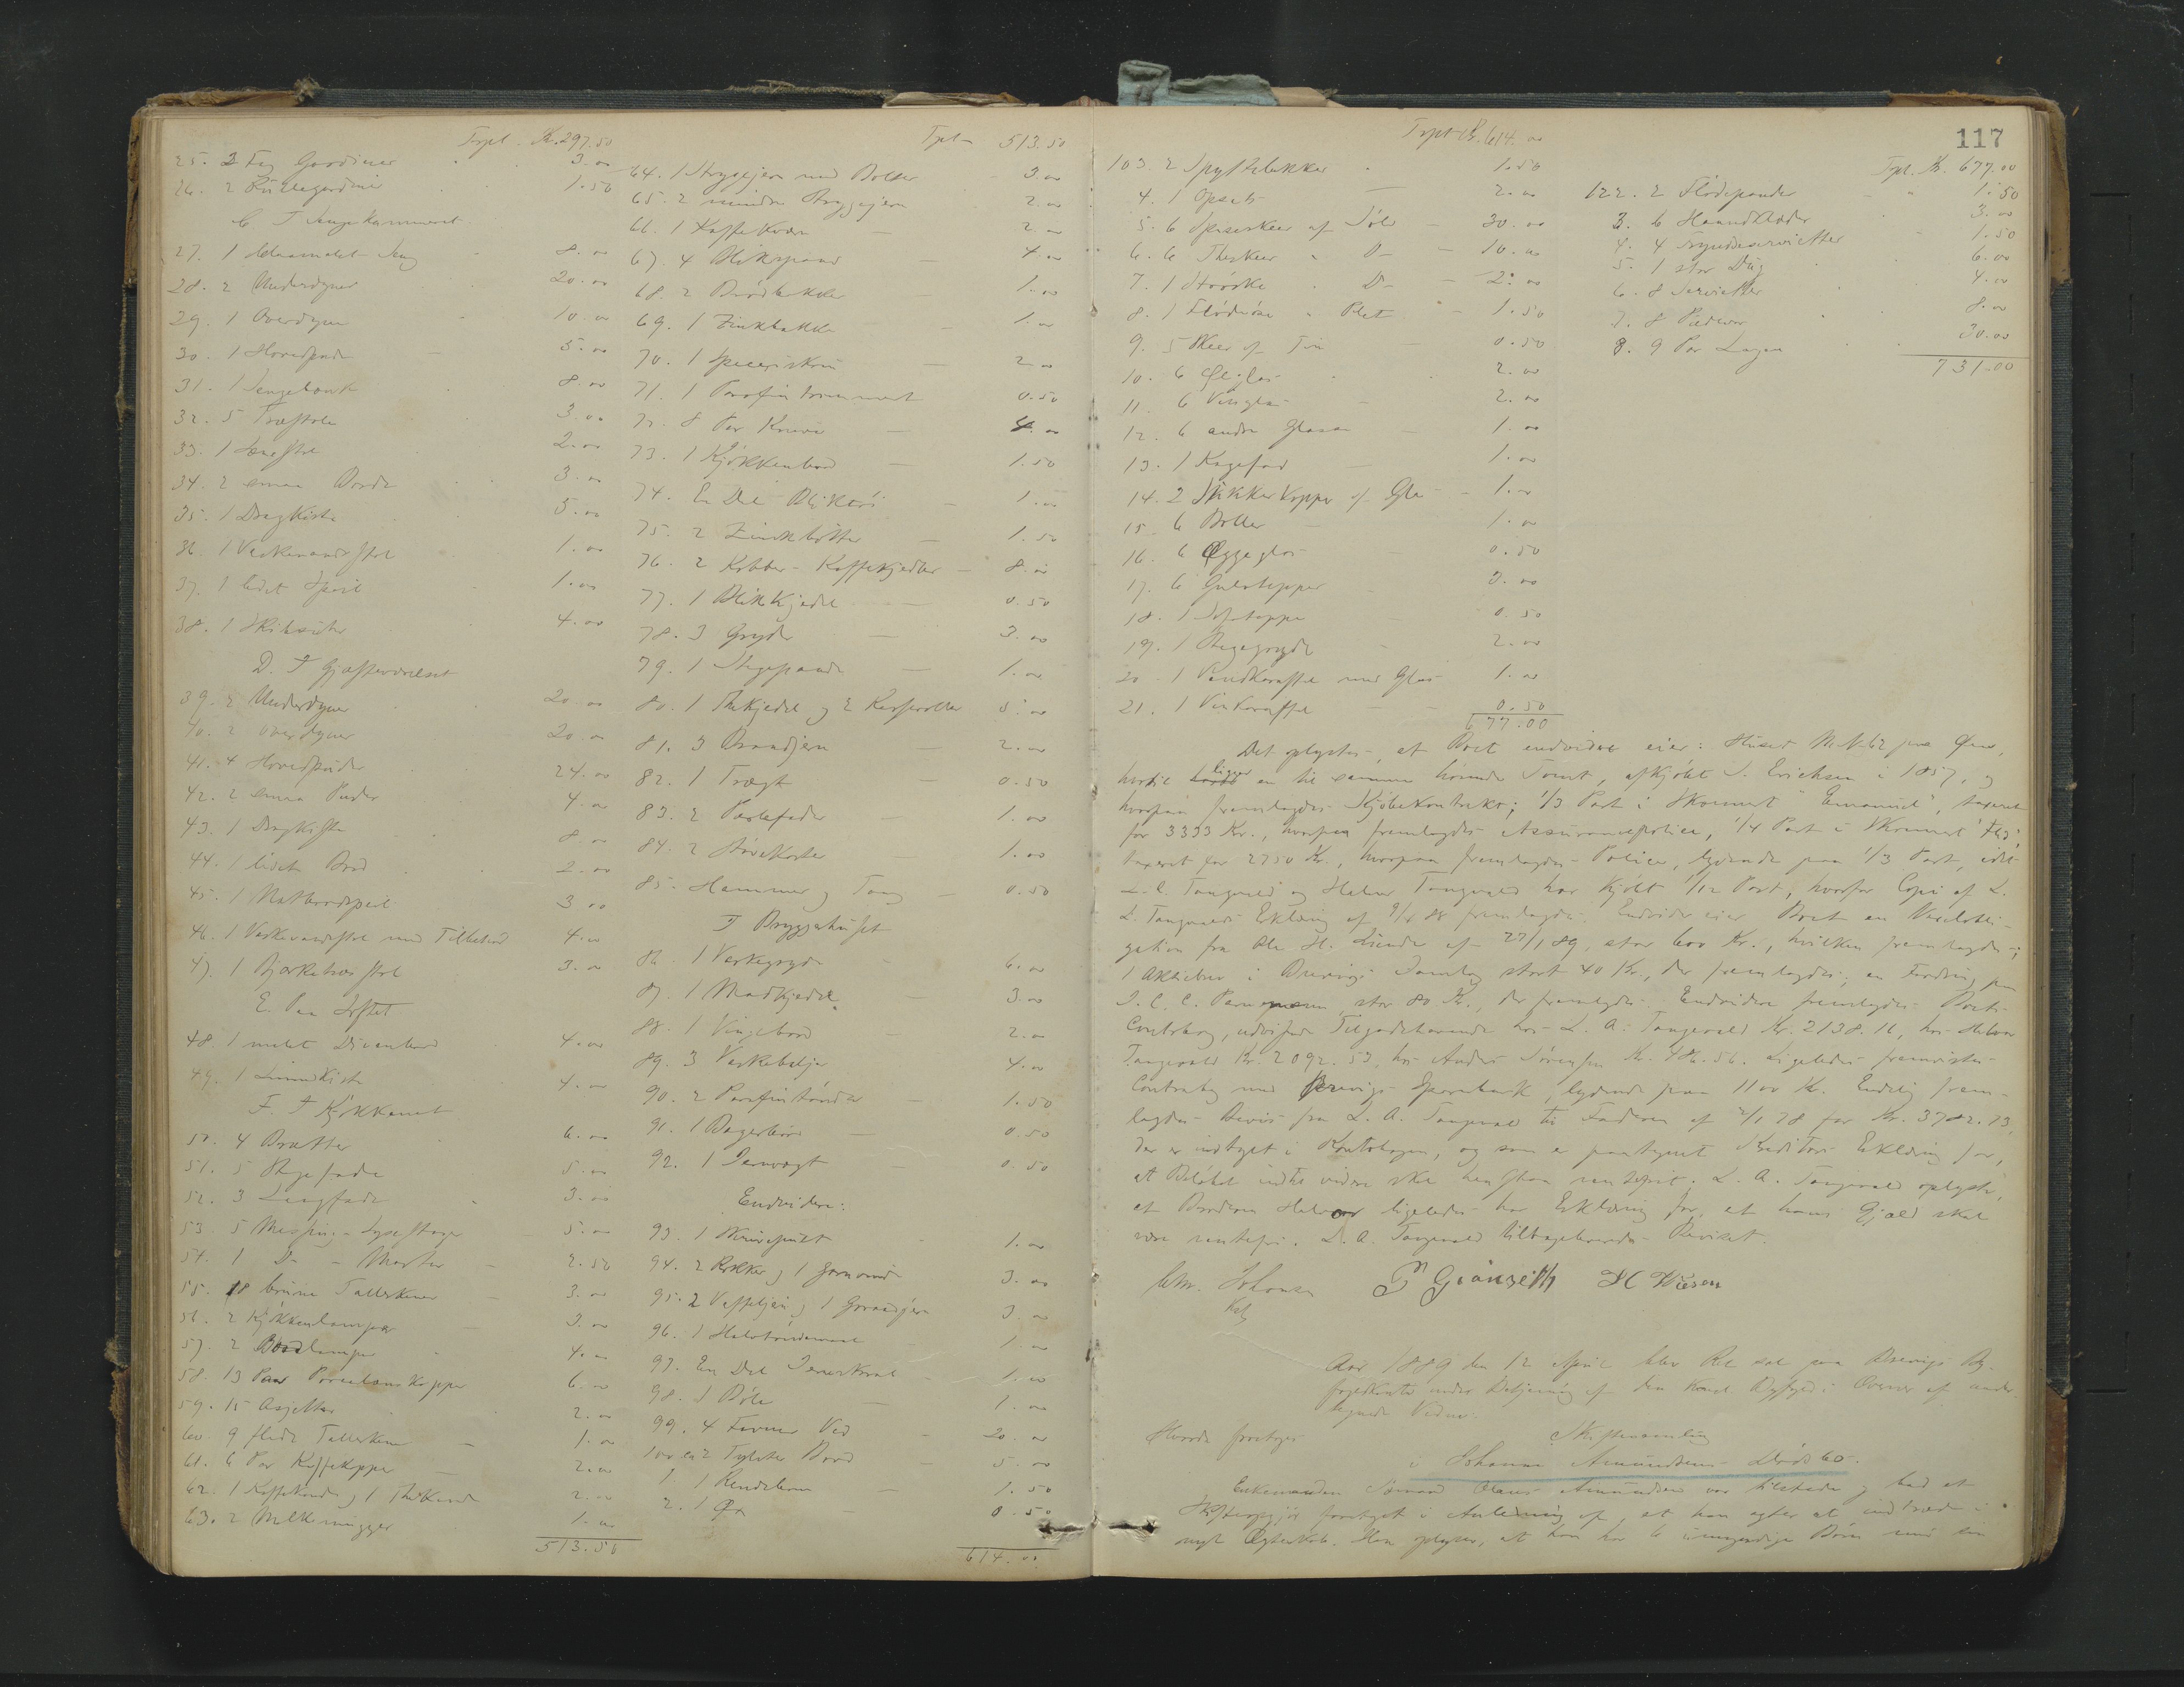 Trpt. Kr. 297.50
25. 2 Fag Gardiner 3.00
26. 2 Rullegardiner 1.50
C. I Sengekammeret
27. 1 Seng 8.00
28. 2 Underdyner 20.00
29. 1 Overdyne 10.00
30. 1 Hovedpude 5.00
31. 1 8.00
32. 5 Træstole 3.00
33. 1 Lænestol 2.00
34. 2 smaa Borde 3.00
35. 1 Dragkiste 5.00
36. 1 Vaskevandsstol 1.00
37. 1 lidet Speil 1.00
38. 1 4.00
D. I Gjæsteværelset
39. 2 Underdyner 20.00
40. 2 Overdyner 20.00
41. 4 Hovedpuder 24.00
42. 2 smaa Puder 4.00
43. 1 Dragkiste 8.00
44. 1 lidet Bord 2.00
45. 1 Natbordspeil 3.00
46. 1 Vaskevandsstol med Tilbehør 4.00
47. 1 Bjerketræs stol 3.00
E. Paa Loftet
48. 1 malet 4.00
49. 1 Kiste 4.00
F. I Kjøkkenet
50. 4 Bretter 6.00
51. 5 Stegefade 5.00
52. 3 Langfade 3.00
53. 5 Messing-Lysestager 5.00
54. 1 D- - Morter 2.50
55. 18 brune Tallerkener 3.00
56. 2 Kjøkkenlamper 3.00
57. 2 Bordlamper 4.00
58. 13 Par Porcelænskopper 6.00
59. 15 Asjetter 2.00
60. 9 flade Tallerkener 1.00
61. 6 Par Kaffekopper 2.00
62. 1 Kaffekande og 1 Thekande 2.00
63. 2 Melkemugger 1.00
513.50
Trpt. 513.50
64. 1 Strygejern med Bolter 3.00
65. 2 mindre Strygejern 2.00
66. 1 Kaffekværn 2.00
67. 4 Blikspand 4.00
68. 2 Brødbakker 1.00
69. 1 Zinkbakke 1.00
70. 1 Speceriskrin 2.00
71. 1 Parafin 0.50
72. 8 Par Knive 4.00
73. 1 Kjøkkenbord 1.50
74. En Del Bliktøi 1.00
75. 2 Zinkbøtter 1.50
76. 2 Kobber-Kaffekjedler 8.00
77. 1 Blikkjedel 0.50
78. 3 Gryder 3.00
79. 1 Stegepande 1.00
80. 1 Thekjedel og 2 Kasseroller 5.00
81. 3 Brandjern 2.00
82. 1 Tragt 0.50
83. 2 1.00
84. 2 Støvekoster 1.00
85. Hammer og Tang 0.50
I Bryggehuset
86. 1 Vaskegryde 6.00
87. 1 Madkjedel 3.00
88. 1 Vingebord 2.00
89. 3 Vaskebaljer 4.00
90. 2 Parafintønder 1.50
91. 1 Bagerbord 0.50
92. 1 Jernvægt 0.50
Endvidere:
93. 1 Skrivepult 1.00
94. 2 Rokker og 1 Garnvinde 3.00
95. 2 Vaffeljern og 1 Goraadjern 3.00
96. 1 Halvtøndemaal 1.00
97. En Del Jernskrab 1.00
98. 1 Bøle 1.00
99. 4 Favner Ved 20.00
100. ca 2 Tylvter Bord 5.00
1. 1 1.50
2. 1 Øx 0.50
614.00
117
Trpt. Kr. 614.00
103. 2 Spyttebakker 1.50
4. 1 Opsats 2.00
5. 6 Spiseskeer af Sølv 30.00
6. 6 Theskeer " D- 10.00
7. 1 Strøske " D- 2.00
8. 1 Flødeøse " Plet 1.50
9. 5 Skeer af Tin 0.50
10. 6 Ølglas 2.00
11. 6 Vinglas 2.00
12. 6 andre Glasse 1.00
13. 1 Kagefad 1.00
14. 2 Sukkerkopper af Glas 1.00
15. 6 Boller 1.00
16. 6 Æggeglas 0.50
17. 6 Gulvtepper 3.00
18. 1 Sofateppe 0.50
19. 1 Stegegryde 2.00
20. 1 Vandkaraffel med Glas 1.00
21. 1 Vinkaraffel 0.50
677.00
Trpt. Kr. 677.00
122. 2 Flødepander 1.50
3. 6 Haandklæder 3.00
4. 4 servietter 1.50
5. 1 stor Dug 6.00
6. 8 Servietter 4.00
7. 8 Pudevar 8.00
8. 9 Par Lagen 30.00
731.00
Det oplystes, at Boet endvidere eier: Huset M. N. 62 paa Øen,
hvortil ligger en til samme hørende Tomt, afkjøbt J. Erichsen i 1857, og
hvorpaa fremlagdes Kjøbekontrakt; 1/3 Part i Skonnert "Emanuel", taxeret
for 3333 Kr., hvorpaa fremlagdes Assurancepolice, 1/4 Part i Skonnert
taxeret for 2750 Kr., hvorpaa fremlagdes Police, lydende paa 1/3 Part, idet
L. C. Tangvald og Halvor Tangvald har kjøbt 1/12 Part, hvorfor Copi af L.
L. Tangvalds Erklæring af 9/4 88 fremlagdes. Endvidere eier Boet en Vexelobli-
gation fra Ole H. af 27/1 89, stor 600 Kr., hvilken fremlagdes;
1 Aktiebrev i Brevigs stort 40 Kr., der fremlagdes; en Fordring paa
J. C. C. stor 80 Kr., der fremlagdes. Endvidere fremlagdes Boets
Contrabog, udvisende Tilgodehavende hos L. A. Tangvald Kr. 2138.11, hos Halvor
Tangvald Kr. 2092.53, hos Anders Sørensen Kr. 486.56. Ligeledes fremvistes
Contrabog med Brevigs Sparebank, lydende paa 1100 Kr. Endelig frem-
lagdes Bevis fra L. A. Tangvald til Faderen af 2/1 78 for Kr. 3782.73,
der er indtaget i Kontrabogen, og som er paategnet Kreditors Erklæring for,
at Beløbet indtil videre skal henstaa rentefrit. L. A. Tangvald oplyste,
at Broderen Halvor ligeledes har Erklæring for, at hans Gjæld skal
være rentefri. L. A. Tangvald tilbageleveredes Beviset.
Chr. Johnsen P Grønseth H Wiesen
Aar 1889 den 12 April blev Ret sat paa Brevigs By-
fogedkontor under Betjening af den Const. Byfoged i Overvær af under-
tegnede Vidner.
Hvorda foretoges Skiftesamling
i Johanne Amundsens Dødsbo.
Enkemanden Sømand Olaus Amundsen var tilstede og bad et
Skifteopgjør foretaget i Anledning af, at han agter at indtræde i
nyt Ægteskab. Han oplyser, at han har 6 umyndige Børn med sin